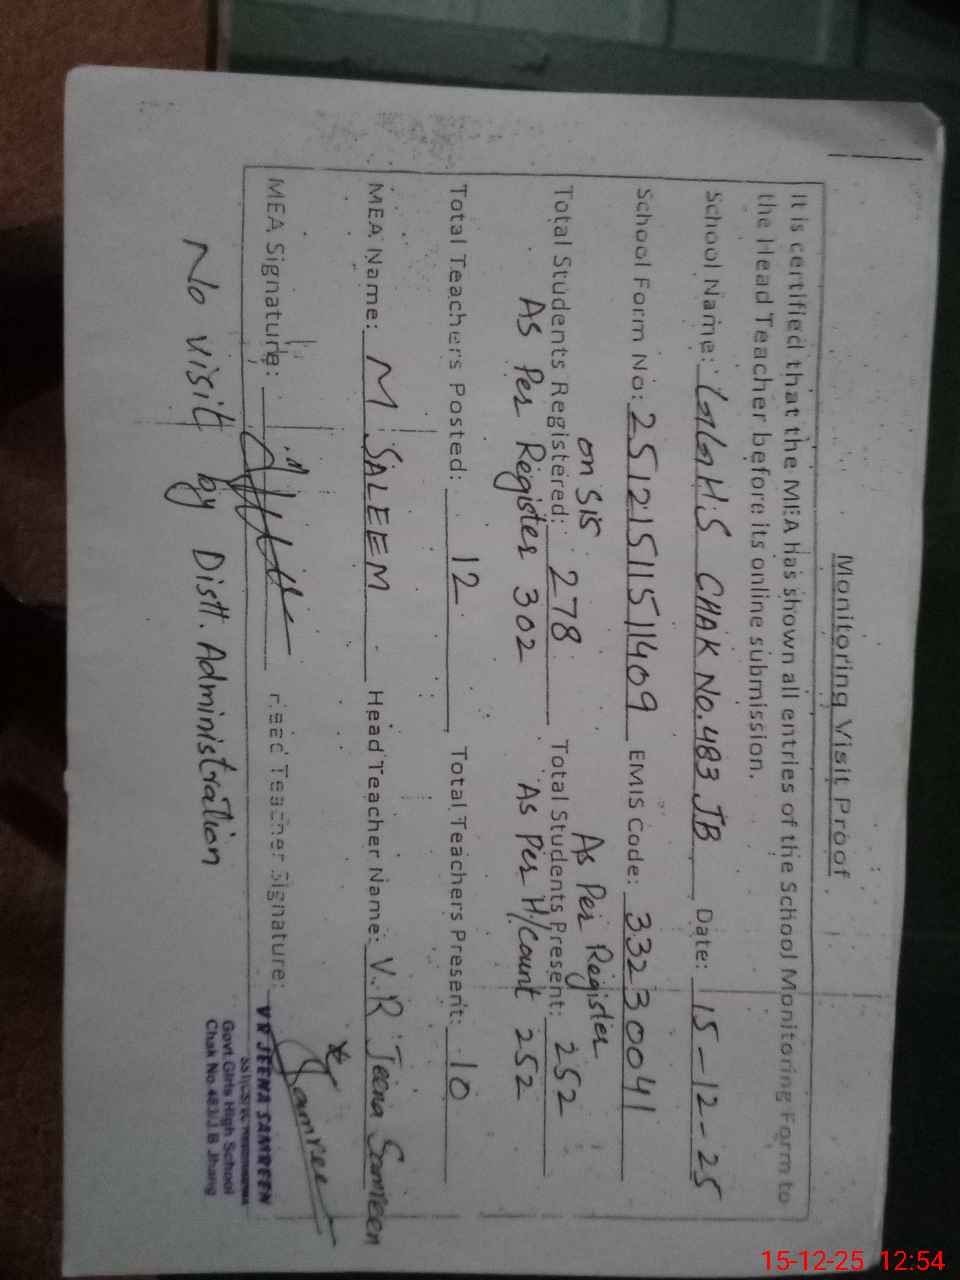 Monitoring Visit Proof
It is certified that the MEA has shown all entries of the School Monitoring Form to
the Head Teacher before its online submission.
School Name: GGHS CHAK No.483 JB Date: 15-12-25
School Form No: 25121511511409 EMIS Code: 33230041
on SIS As Per Register
Total Students Registered: 278 Total Students Present: 252
As Per Register 302 As Per H/Count 252
Total Teachers Posted: 12 Total Teachers Present: 10
MEA Name: M SALEEM Head Teacher Name: V.R Jeena Samreen
MEA Signature: Head Teacher Signature: Samreen
VR JEENA SAMREEN
Govt.Girls High School
Chak No.483/J.B Jhang
No visit by Distt. Administration
15-12-25 12:54